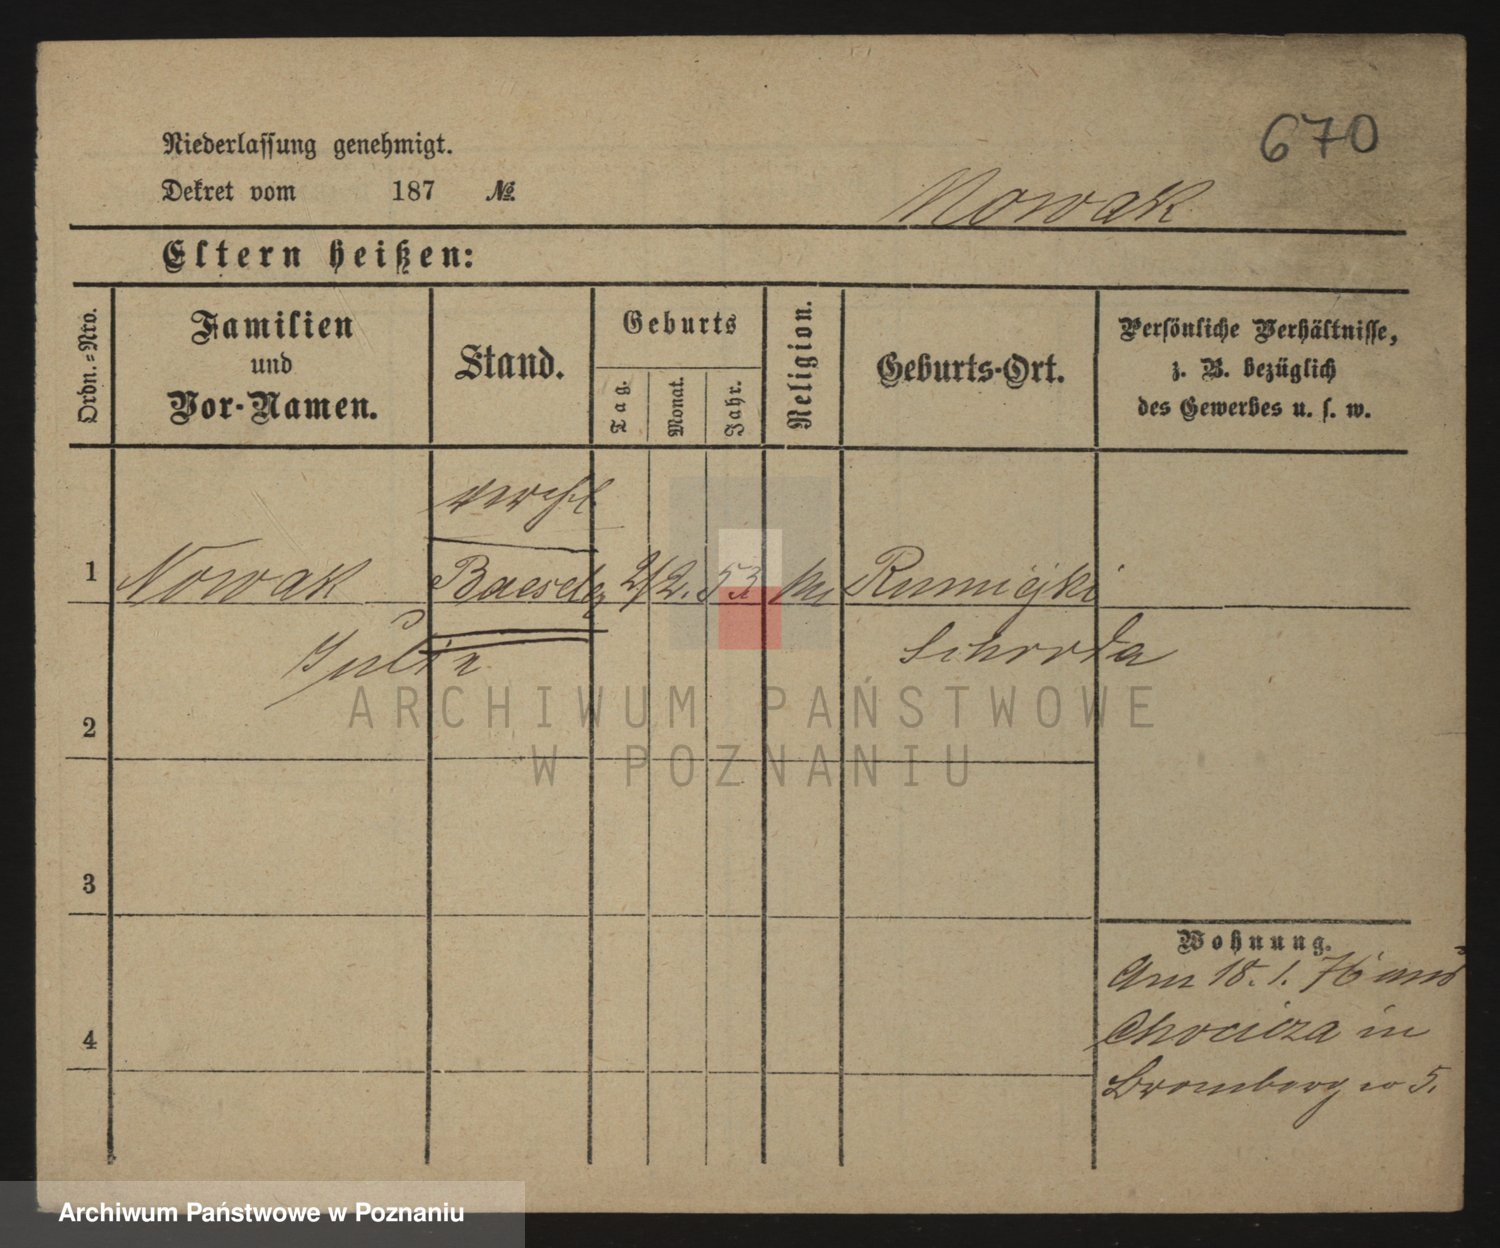 670
Niederlassung genehmigt.
Dekret vom 187 №
Nowak
Eltern heißen:
Ordn.=Nro.
Familien
und
Vor-Namen.
Stand.
Geburts
Tag.
Monat.
Jahr.
Religion.
Geburts-Ort.
Persönliche Verhältnisse,
z. B. bezüglich
des Gewerbes u. s. w.
1 Nowak 2/2. 53
Julia
2
3
4
Wohnung.
Am 18. 1. 76
Chocicza in
Bromberg 5.
ARCHIWUM PAŃSTWOWE
W POZNANIU
Archiwum Państwowe w Poznaniu